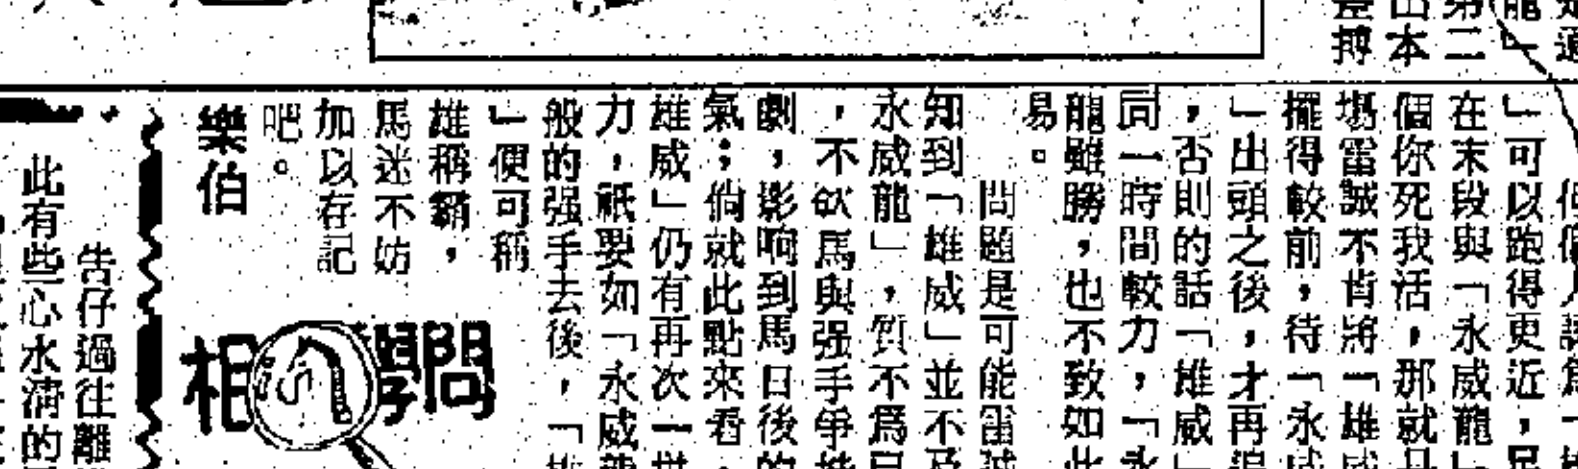 第二
出本
差搏
」可以跑得更近，
在末段與「永威龍」
個你死我活，那就
場雷誠不肯將「雄威
擺得較前，待「永威
」出頭之後，才再追
，否則的話「雄威」
同一時間較力，「永
龍雖勝，也不致如此
易。
問題是可能雷誠
知到「雄威」並不及
永威龍」，質不爲
，不欲馬與强手爭
劇，影响到馬日後的
氣；倘就此點來看，
雄威」仍有再次一拼
力，祇要如「永威龍
般的强手去後，「
」便可稱
雄稱霸，
馬迷不妨
加以存記
吧。
樂伯
相
學問
告仔過往離
此有些心水清的